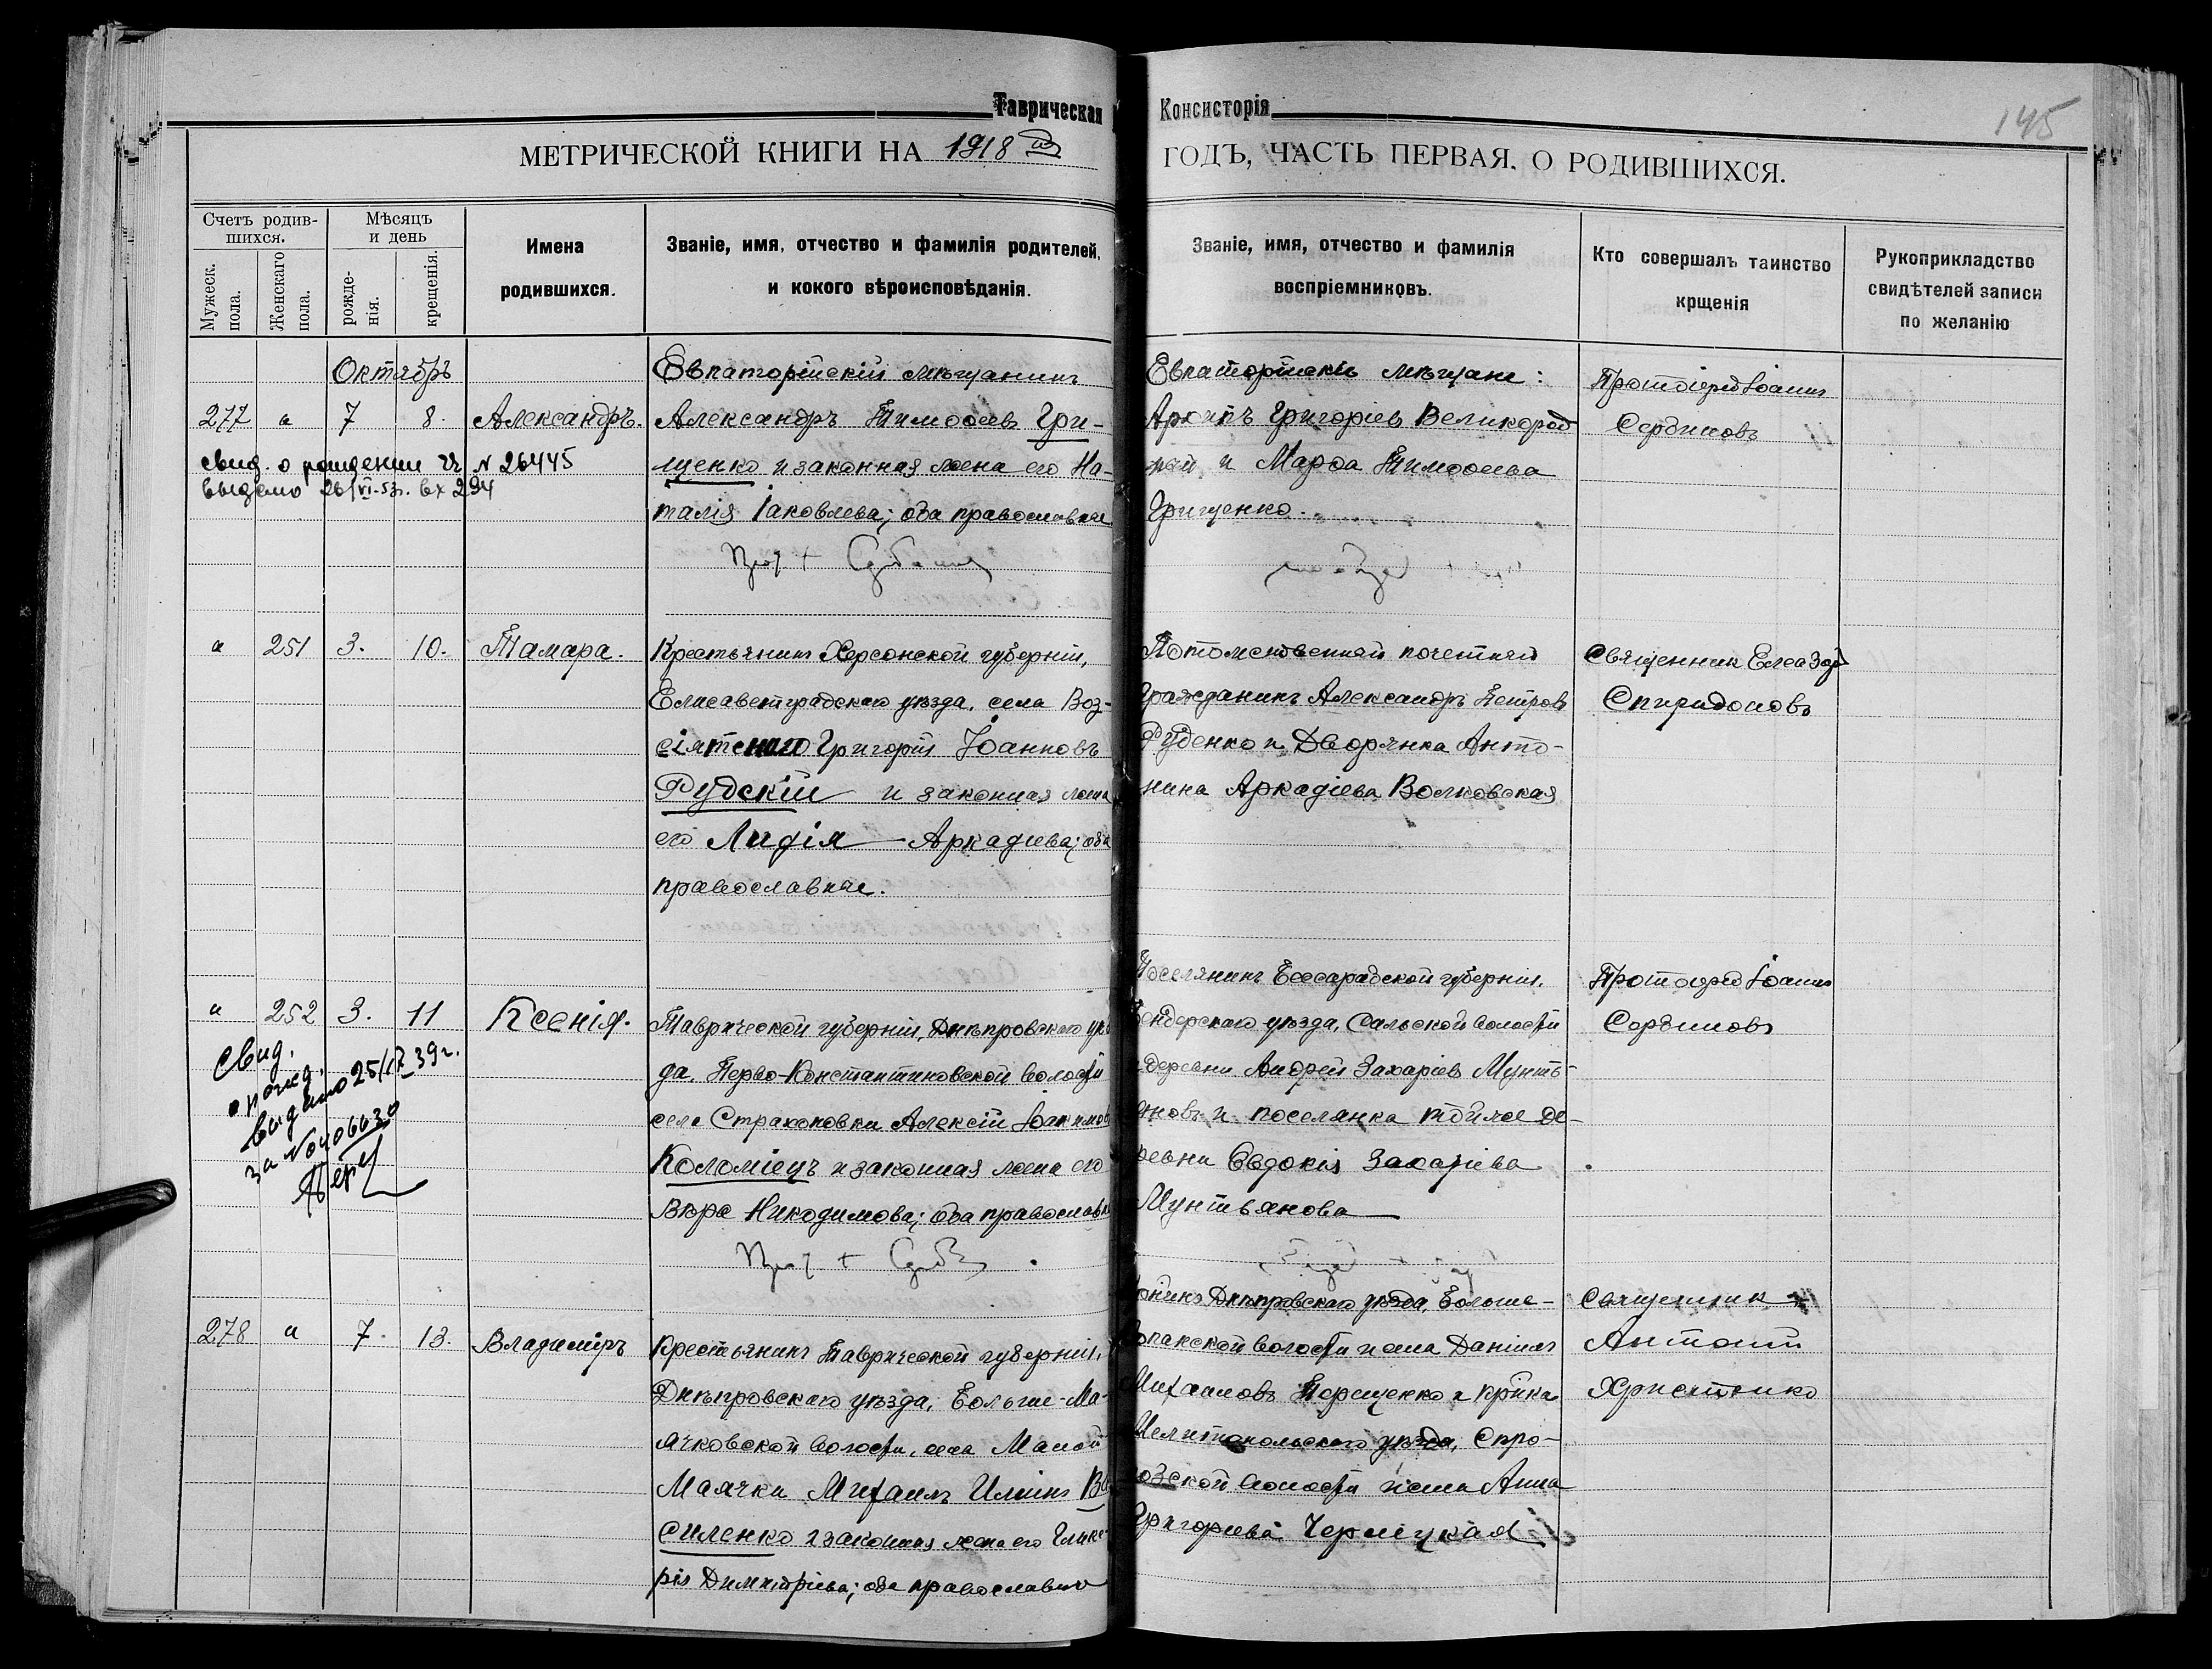 Таврическая Консисторія
145
МЕТРИЧЕСКОЙ КНИГИ НА 1918 ГОДЪ, ЧАСТЬ ПЕРВАЯ, О РОДИВШИХСЯ.
Счетъ родив-
шихся.
Мужеск.
пола.
Женскаго
пола.
Мѣсяцъ
и день
рожде-
нія.
крещенія.
Имена
родившихся.
Званіе, имя, отчество и фамилія родителей,
и кокого вѣроисповѣданія.
Званіе, имя, отчество и фамилія
воспріемниковъ.
Кто совершалъ таинство
крщенія
Рукоприкладство
свидѣтелей записи
по желанію
Октябрь
277 " 7 8. Александръ.
свид. о рождении № 26445
выдано 26/VI-53г. вх 294
Евпаторійскій мѣщанинъ
Александръ Тимоѳеевъ Гри-
щенко и законная жена его На-
талія Іаковлева; оба православные
Евпаторійскіе мѣщане:
Архипъ Григоріевъ Великород
ный и Марѳа Тимоѳеева
Грищенко.
Протоіерей Іоаннъ
Сердиновъ
" 251 3. 10. Тамара.
Крестьянинъ Херсонской губерніи,
Елисаветградскаго уѣзда, села Воз-
сіятскаго Григорій Іоанновъ
Рудскій и законная жена
его Лидія Аркадіева; оба
православные.
Потомственный почетный
Гражданинъ Александръ Петровъ
Руденко и Дворянка Анто-
нина Аркадіева Волковская
Священник Елеазаръ
Спиридоновъ
" 252 3. 11 Ксенія.
Свид.
о рожд.
выдано 25/IX-39г.
за №
Таврической губерніи, Днѣпровскаго уѣз
да, Перво-Константиновской волости
села Строгановки Алексій Іоакимовъ
Коломіецъ и законная жена его
Вѣра Никодимова; оба православные
Поселянинъ Бессарабской губерніи,
Бендерскаго уѣзда, Сальской волости
и деревни Андрей Захаріевъ Мунть-
яновъ и поселянка той же де-
ревни Евдокія Захаріева
Мунтьянова
Протоіерей Іоаннъ
Сердиновъ
278 " 7. 13. Владиміръ
Крестьянинъ Таврической губерніи,
Днѣпровскаго уѣзда, Больше-Ма-
ячковской волости, села Малой
Маячки Михаилъ Иліинъ Ва-
силенко и законная жена его Глике-
рія Димитріева; оба православные
Днѣпровскаго уѣзда, Больше-
Копакской волости и села Даніилъ
Михаиловъ Порщенко и кр-нка
Мелитопольскаго уѣзда, Сѣро-
гозской волости и села Анна
Григоріева Чернецкая
Священник
Антоній
Христенко